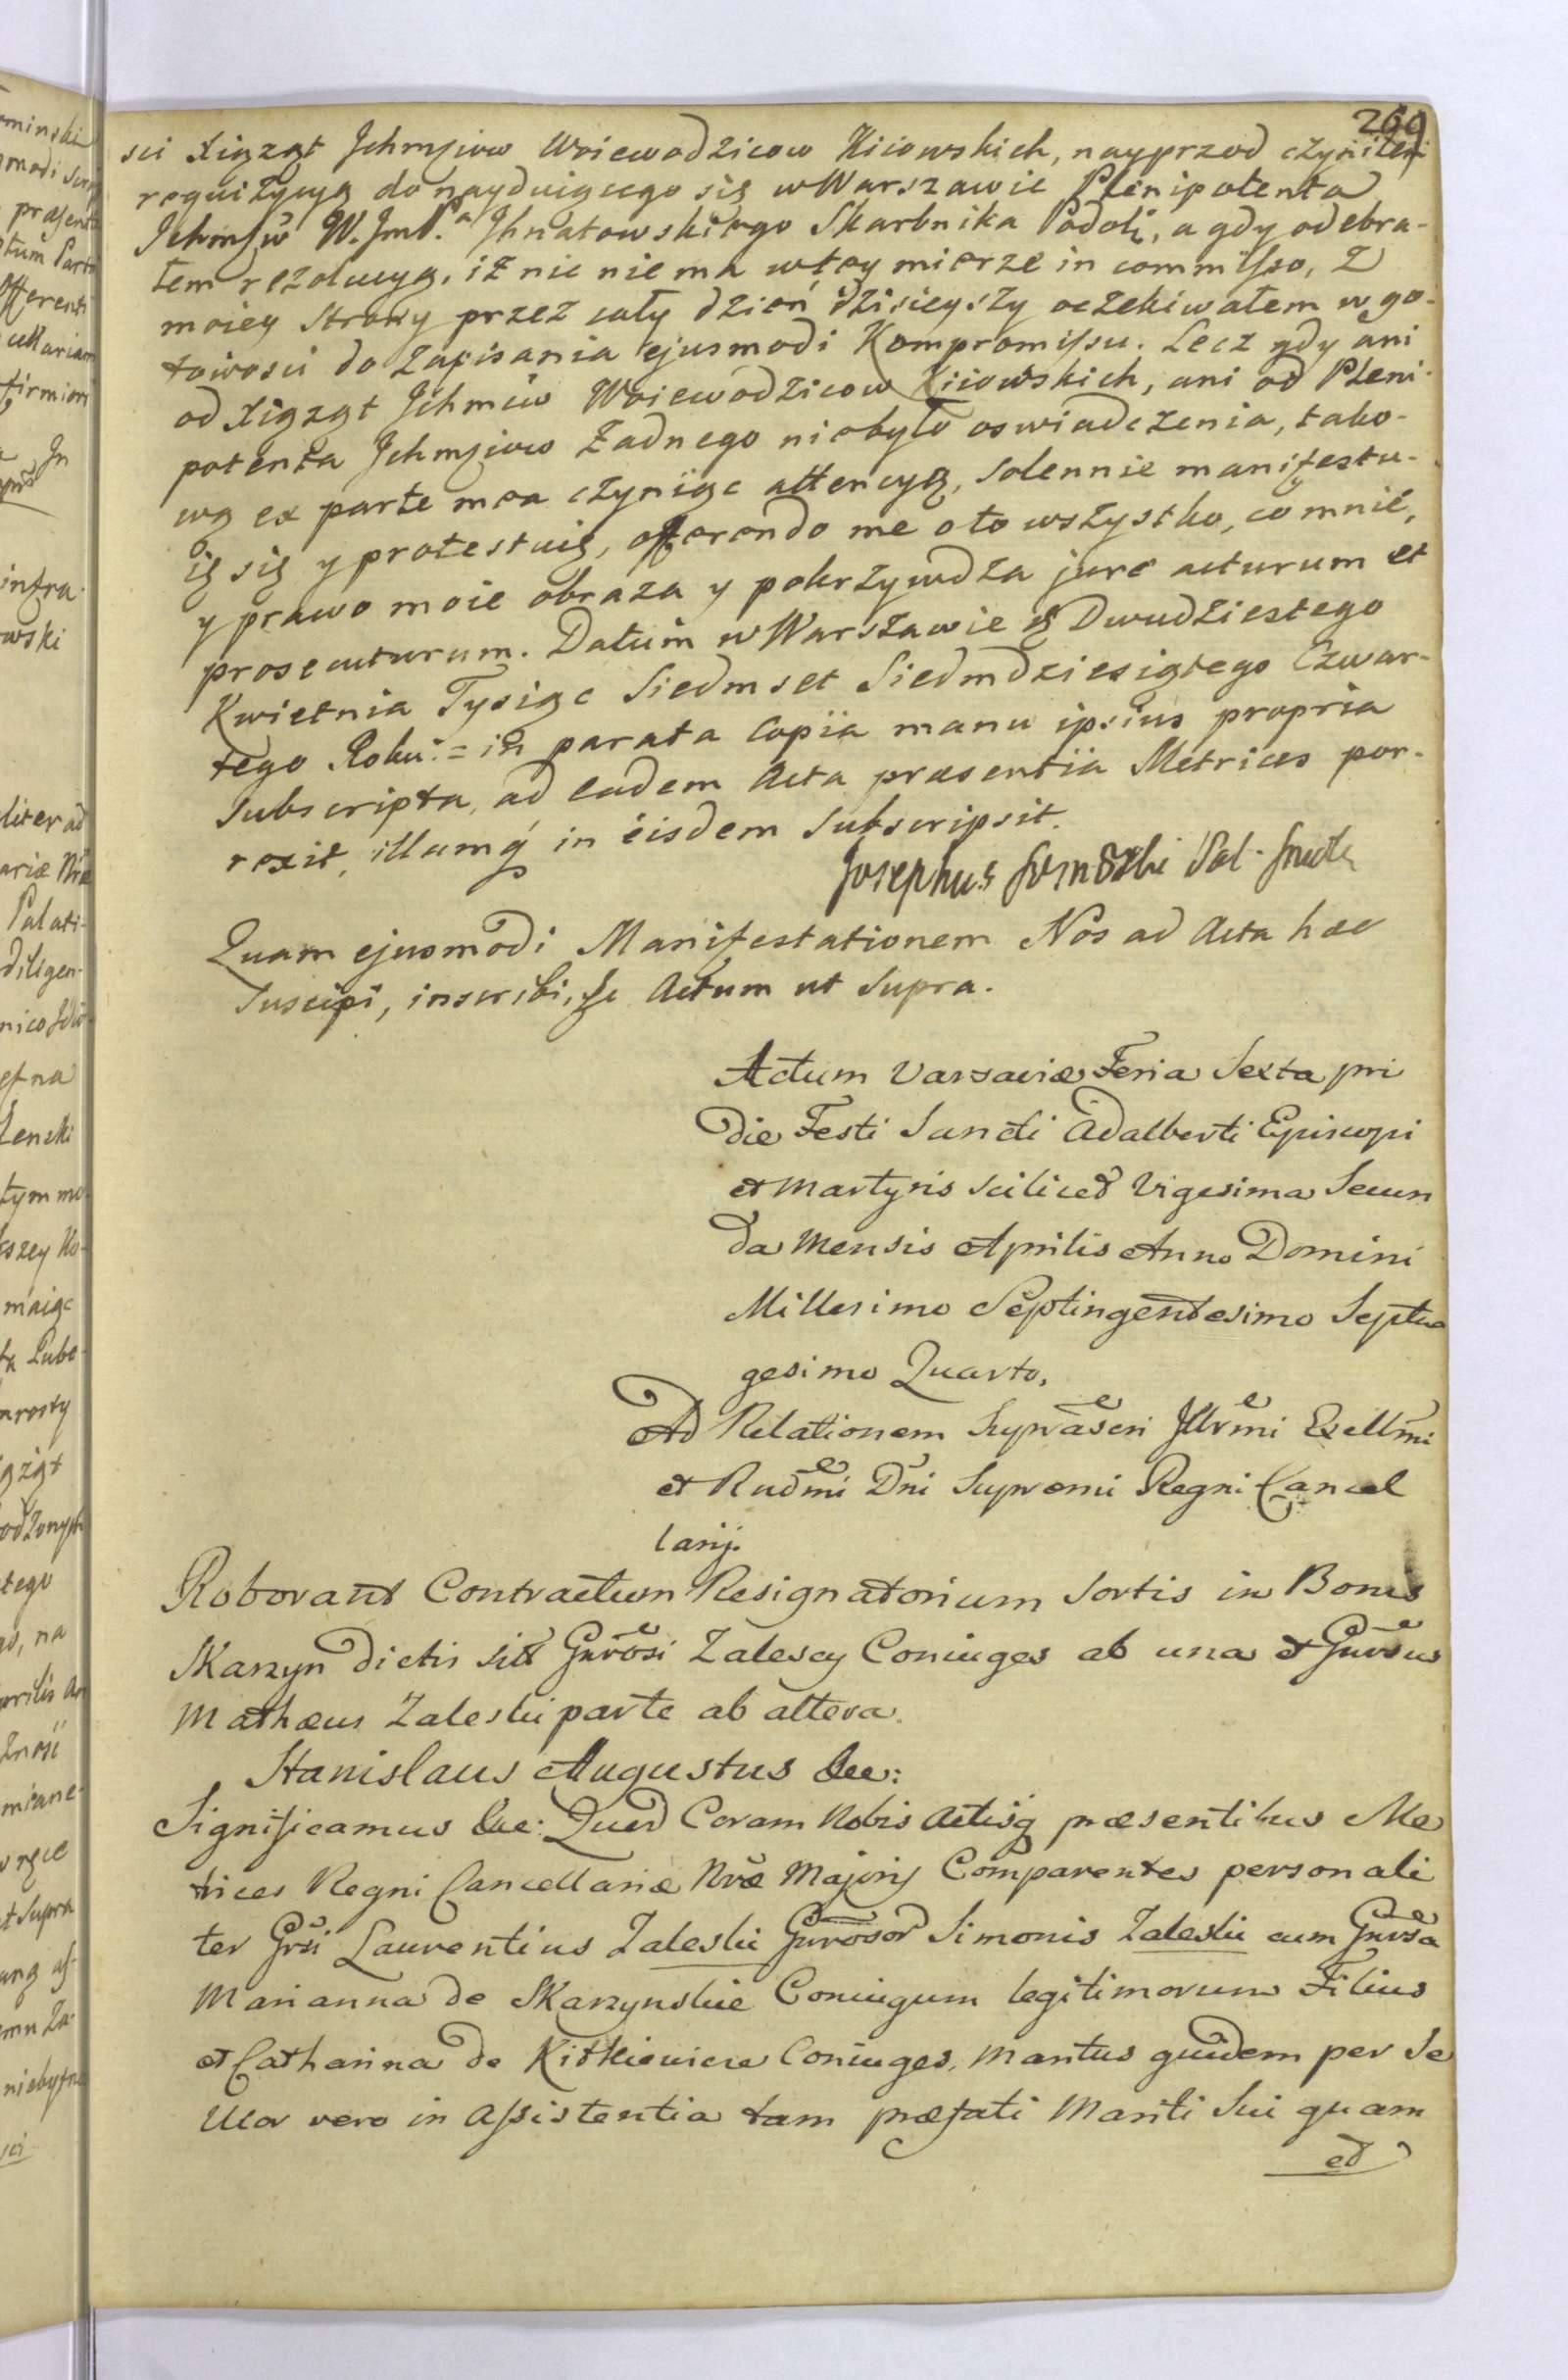 269
sci Xiąząt Jchmsciow Woiewodzicow Kiiowskich, nayprzod czyniłem
requizycyą do nayduiącego się w Warszawie Plenipotenta
Jchmsciw W. JmP.ᵃ Jhnatowskiego Skarbnika Podolˢ, a gdy odebra-
łem rezolucyą, iż nic nie ma w tey mierze in commisso, z
moiey strony przez cały dzien dzisieyszy oczekiwałem w go-
towosci do zapisania ejusmodi Kompromissu. Lecz gdy ani
od Xiąząt Jchmciw Woiewodzicow Kiiowskich, ani od Pleni-
potenta Jchmsciow żadnego niebyło oswiadczenia, tako-
wą ex parte mea czyniąc attencyą, solennie manifestu-
ię się y protestuię, offerendo me oto wszystko, co mnie,
y prawo moie obraza y pokrzywdza jure acturum et
prosecuturum. Datum w Warszawie D Dwudziestego
Kwietnia Tysiąc Siedmset Siedmdziesiątego Czwar-
tego Roku: = in parata Copia manu ipsius propria
subscripta, ad eadem Acta præsentia Metrices por-
rexit, illamq́ in eisdem subscripsit.
Josephus
Quam ejusmodi Manifestationem Nos ad Acta hæc
suscipi, inscribi, Actum ut supra.
Actum Varsaviæ Feria Sexta pri
die Festi Sancti Adalberti Episcopi
et Martyris scilicet Vigesima Secun
da Mensis Aprilis Anno Domini
Millesimo Septingentesimo Septua
gesimo Quarto,
Ad Relationem Supraseri Jllrmi Exellmi
et Rndmi Dni Supremi Regni Cancel
larij.
Roborant Contractum Resignatorium Sortis in Bonis
Skarzyn dictis siti Gnrosi Zalescy Coniuges ab una et Gnrsus
Mathæus Zaleski parte ab altera.
Stanislaus Augustus &ce:
Significamus &ce: Quod Coram Nobis Actisq́ præsentibus Me
trices Regni Cancellariæ Nræ Majoris Comparentes personali
ter Gnrsi Laurentius Zaleski Gnrosor Simonis Zaleski cum Gnrsa
Marianna de Skarzynskie Coniugum legitimorum Filius
et Catharina de Kitkiewicze Coniuges, Maritus quidem per se
Uxor vero in Assistentia tam præfati Mariti sui quam
et